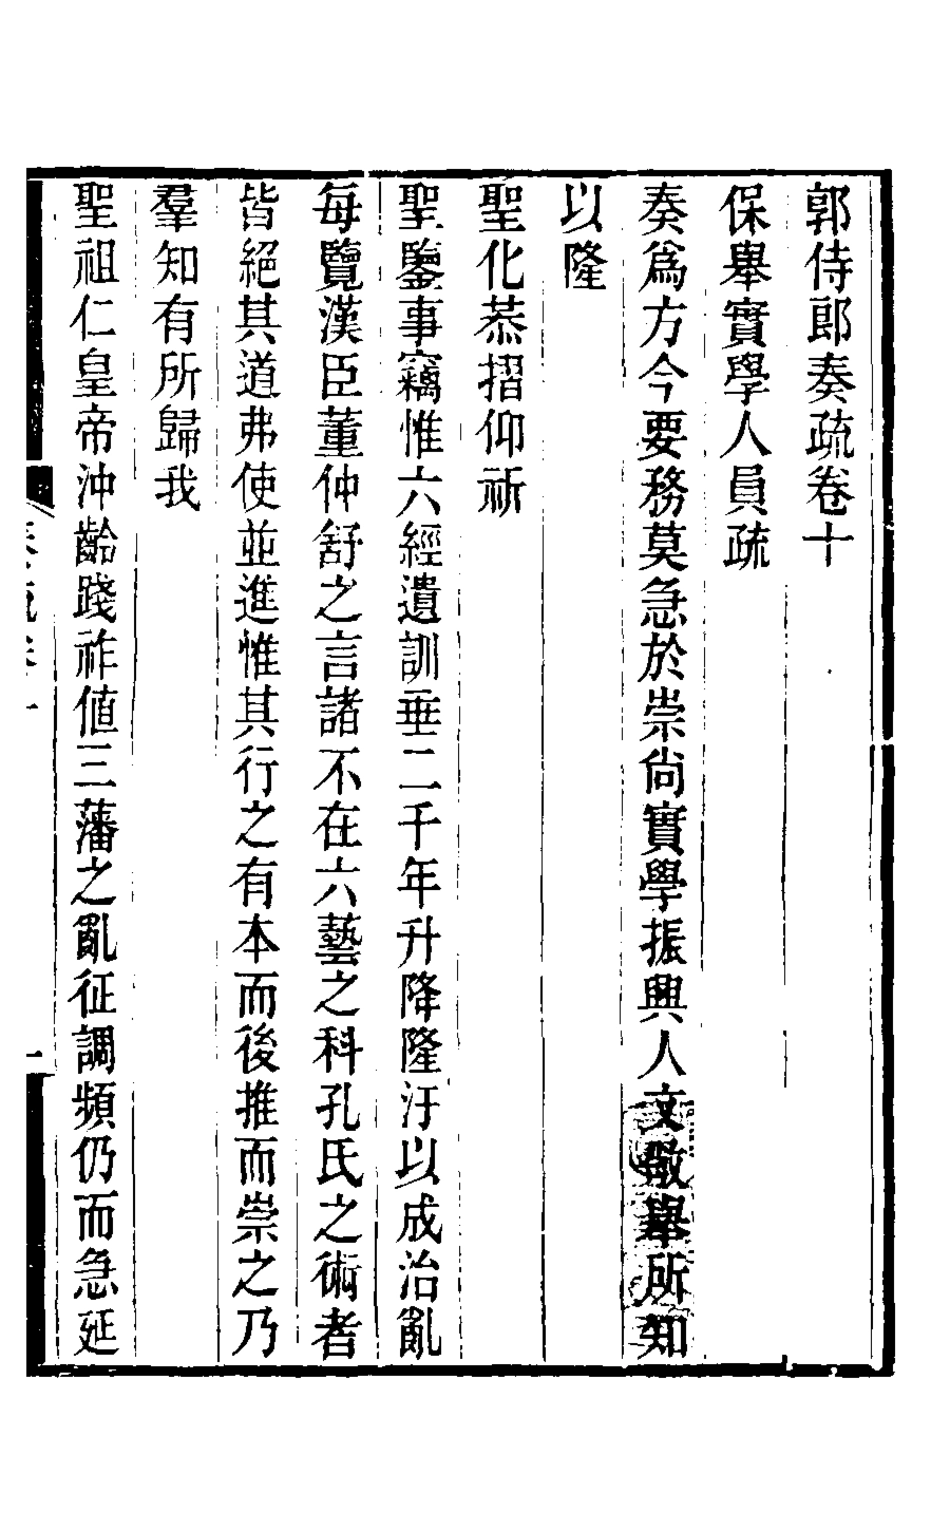 郭侍郎奏疏卷十
保舉實學人員疏
奏爲方今要務莫急於崇尙實學振興人文敬舉所知
以隆
聖化恭摺仰祈
聖鑒事竊惟六經遺訓垂二千年升降隆汙以成治亂
每覽漢臣董仲舒之言諸不在六藝之科孔氏之術者
皆絕其道弗使並進惟其行之有本而後推而崇之乃
羣知有所歸我
聖祖仁皇帝沖齡踐祚値三藩之亂征調頻仍而急延